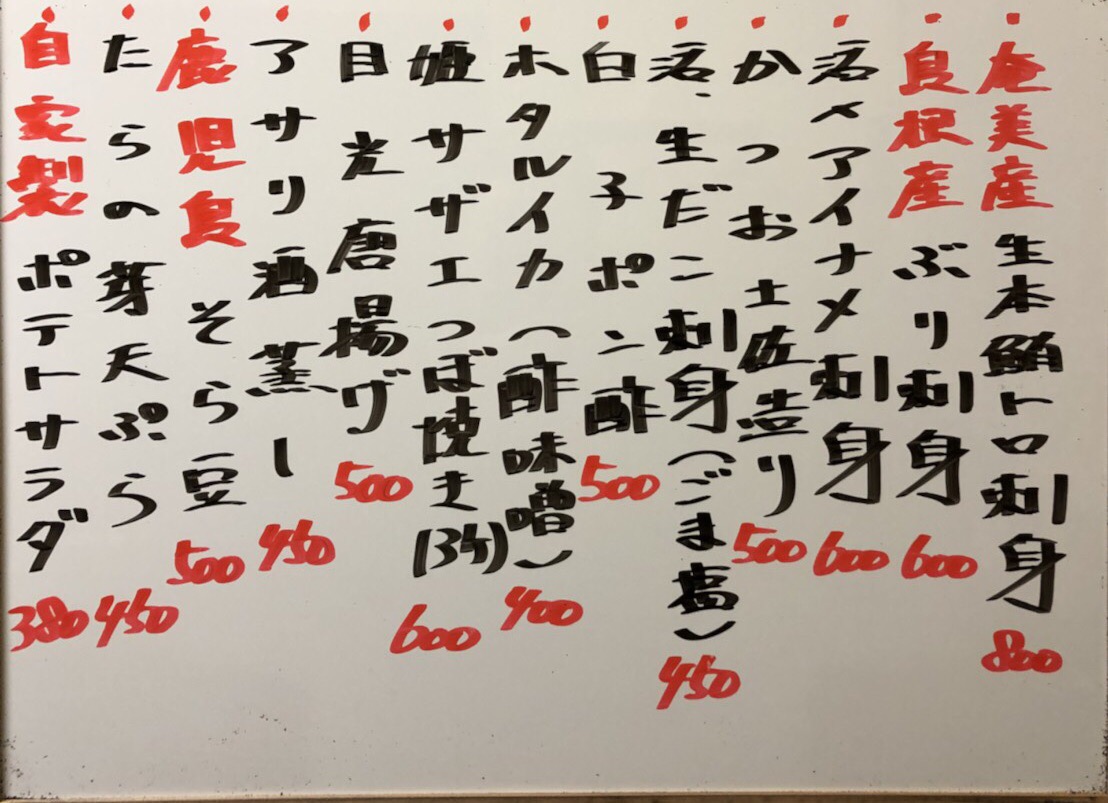 奄美産 生本鮪トロ刺身 800
島根産 ぶり刺身 600
活〆アイナメ刺身 600
かつお 土佐造り 500
活、生だこ刺身(ごま塩) 450
白子ポン酢 500
ホタルイカ(酢味噌) 400
姫サザエつぼ焼き(3ヶ) 600
目光唐揚げ 500
アサリ酒蒸し 450
鹿児島 そら豆 500
たらの芽天ぷら 450
自家製 ポテトサラダ 380